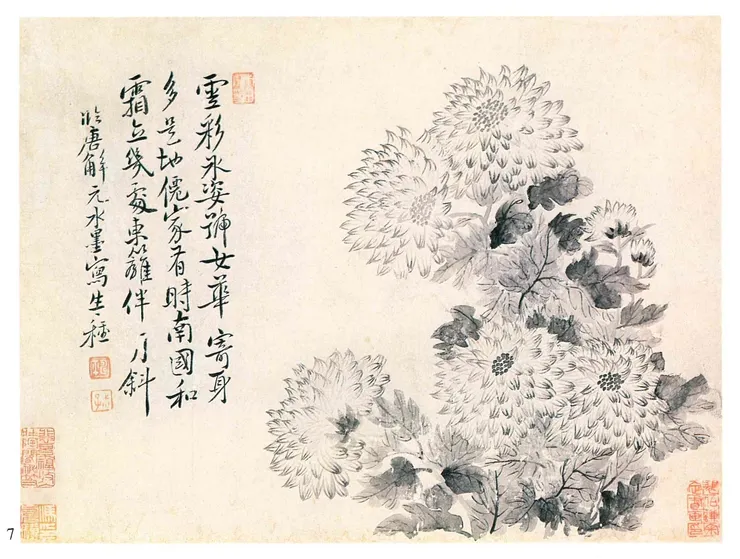 雪彩冰姿號女華寄身
多是地僊家有時南國和
霜立幾處東籬伴月斜
臨唐解元水墨寫生一種
7